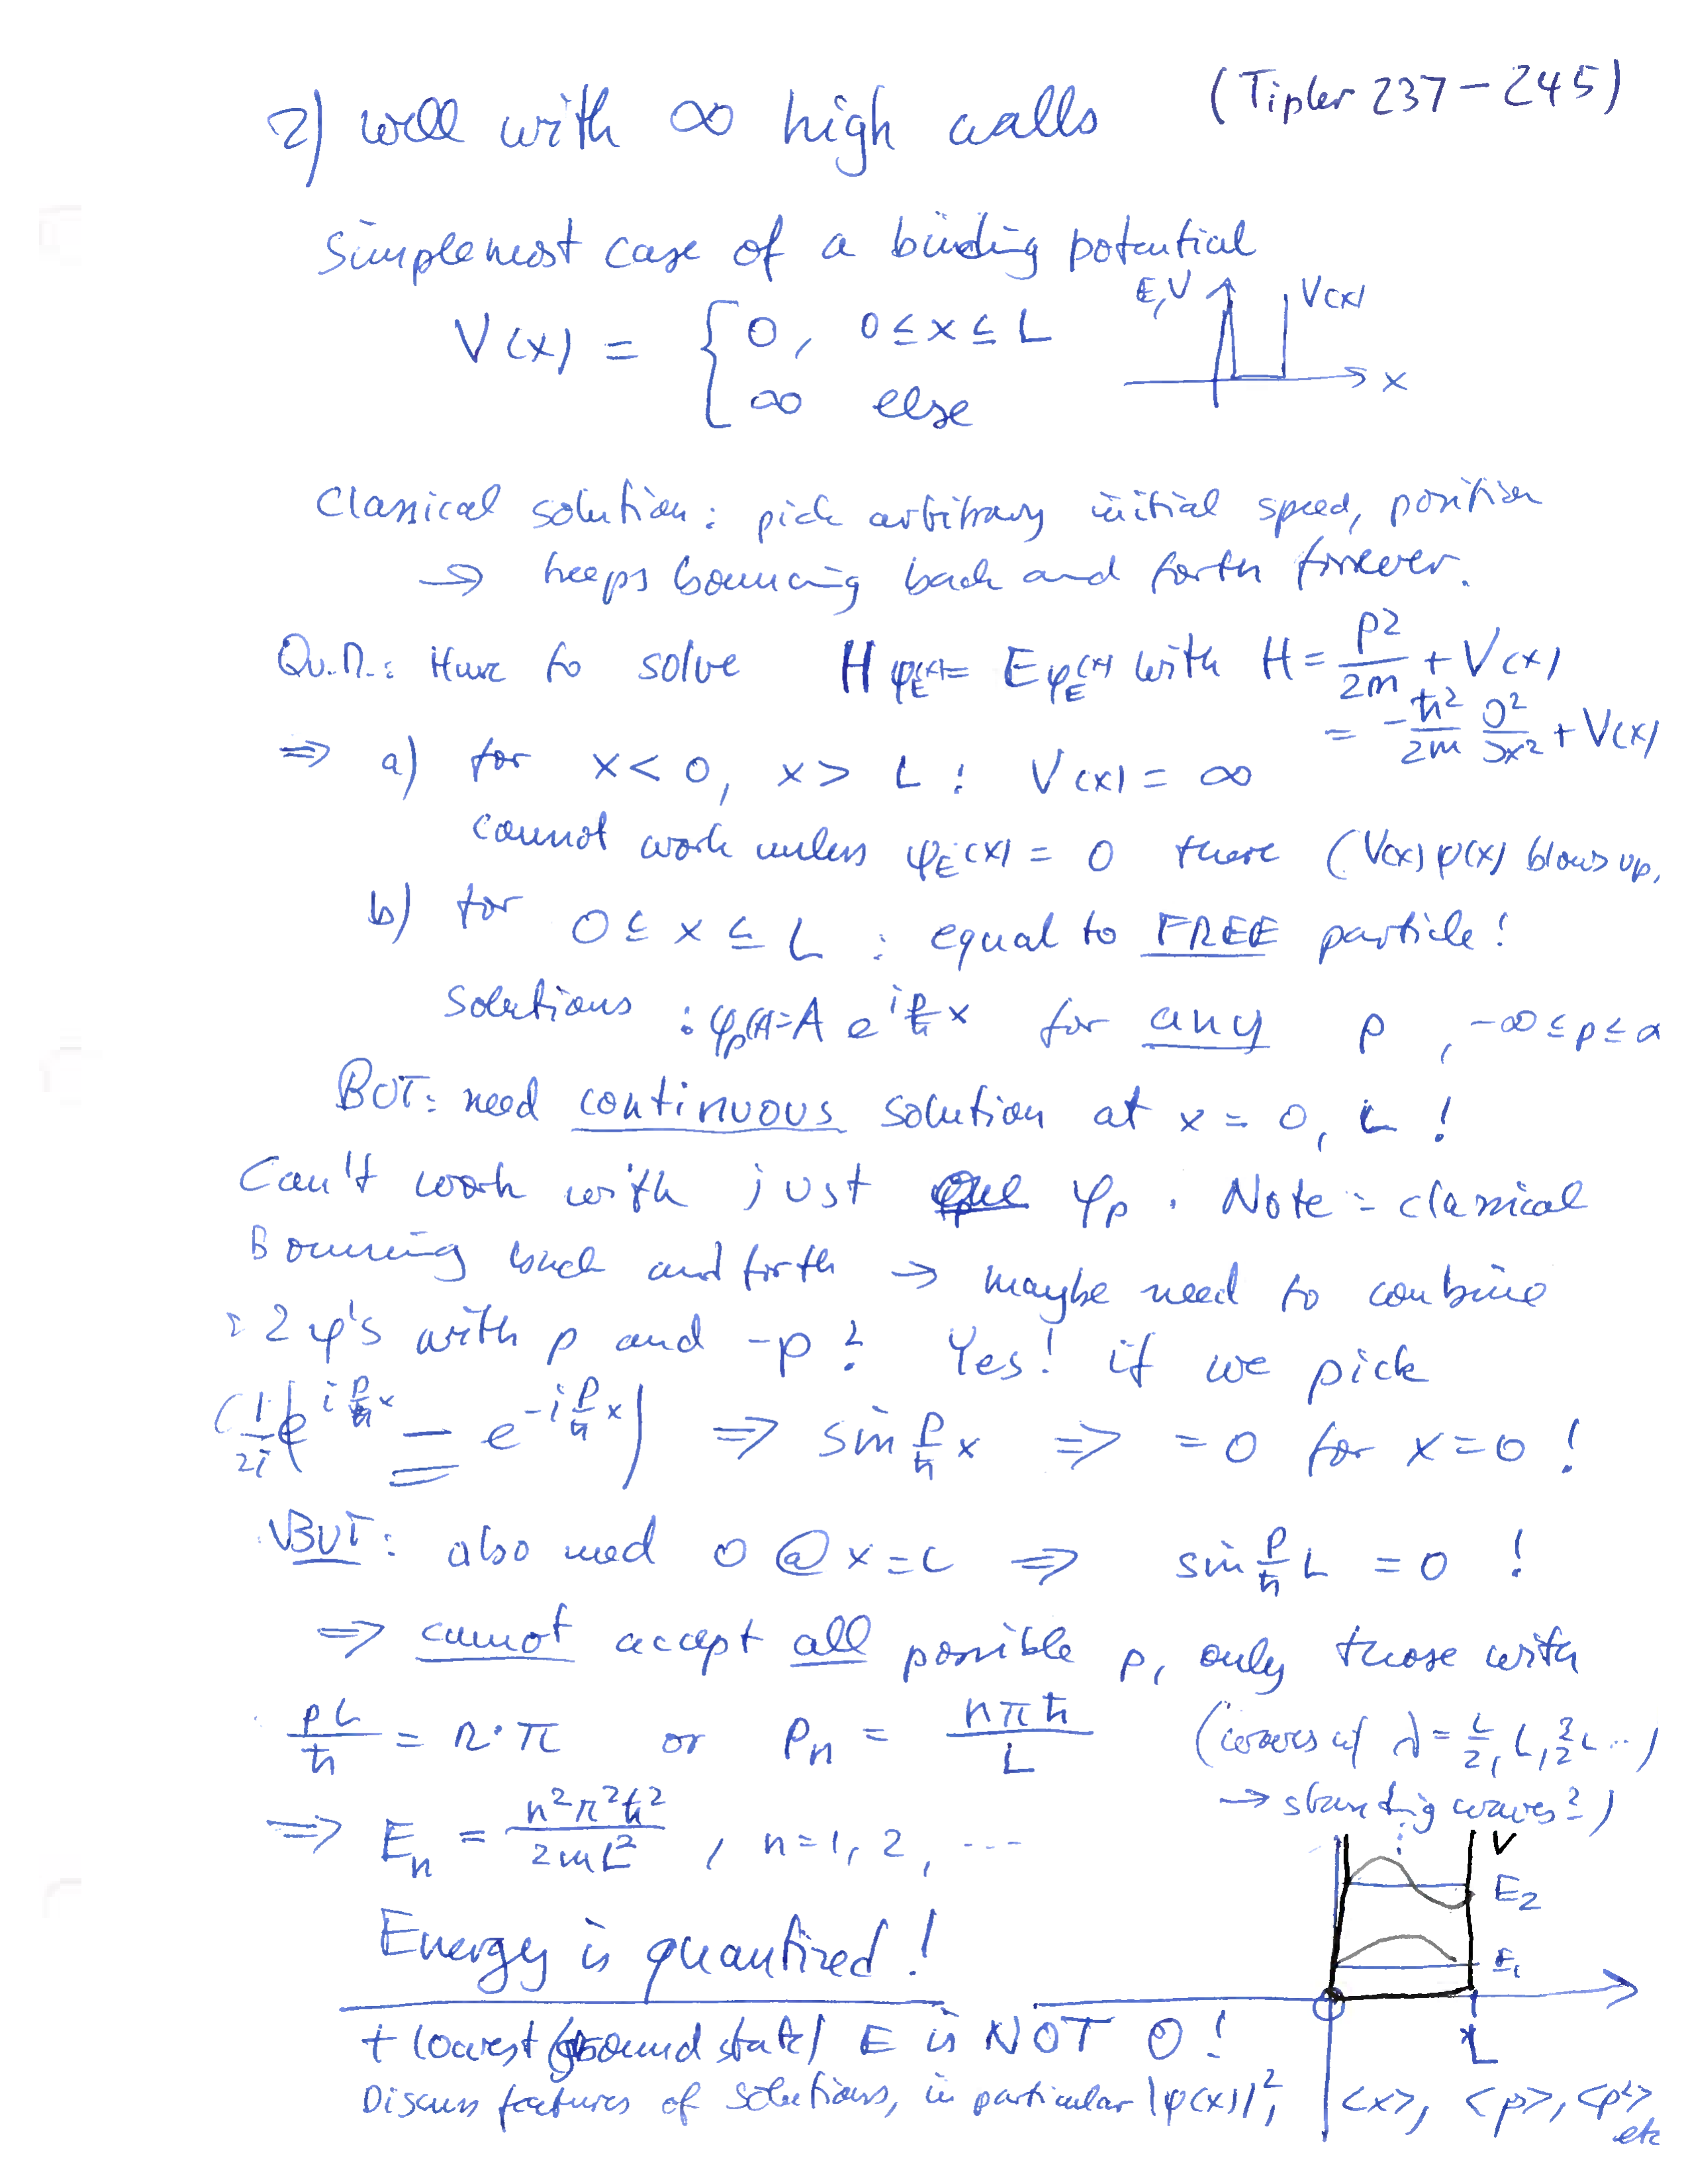 (Tipler 237-245)
2) well with ∞ high walls
Simplemost case of a binding potential
V(x) = { 0, 0 ≤ x ≤ L
∞ else
E,V V(x) x
Classical solution: pick arbitrary initial speed, position
→ keeps bouncing back and forth forever.
Qu.M.: Have to solve H φ_E(x) = E φ_E(x) with H = p²/2m + V(x)
= -ħ²/2m ∂²/∂x² + V(x)
⇒ a) for x < 0, x > L : V(x) = ∞
cannot work unless φ_E(x) = 0 there (V(x)φ(x) blows up,
b) for 0 ≤ x ≤ L : equal to FREE particle!
Solutions : φ_p(x) = A e^{i p/ħ x} for any p, -∞ ≤ p ≤ ∞
BUT: need continuous solution at x = 0, L !
Can't work with just one φ_p . Note: classical
Bouncing back and forth → maybe need to combine
2 φ's with p and -p ? Yes! if we pick
1/2i (e^{i p/ħ x} - e^{-i p/ħ x}) ⇒ sin p/ħ x ⇒ = 0 for x = 0 !
BUT: also need 0 @ x = L ⇒ sin p/ħ L = 0 !
⇒ cannot accept all possible p, only those with
pL/ħ = n·π or p_n = nπħ/L (waves w/ λ = L/2, L, 3/2 L ...)
→ standing waves!)
⇒ E_n = n²π²ħ²/2mL² , n = 1, 2, ...
V
E₂
Energy is quantized!
E₁
+ lowest (ground state) E is NOT 0 !
L
Discuss features of solutions, in particular |φ(x)|², <x>, <p>, <p²>
etc